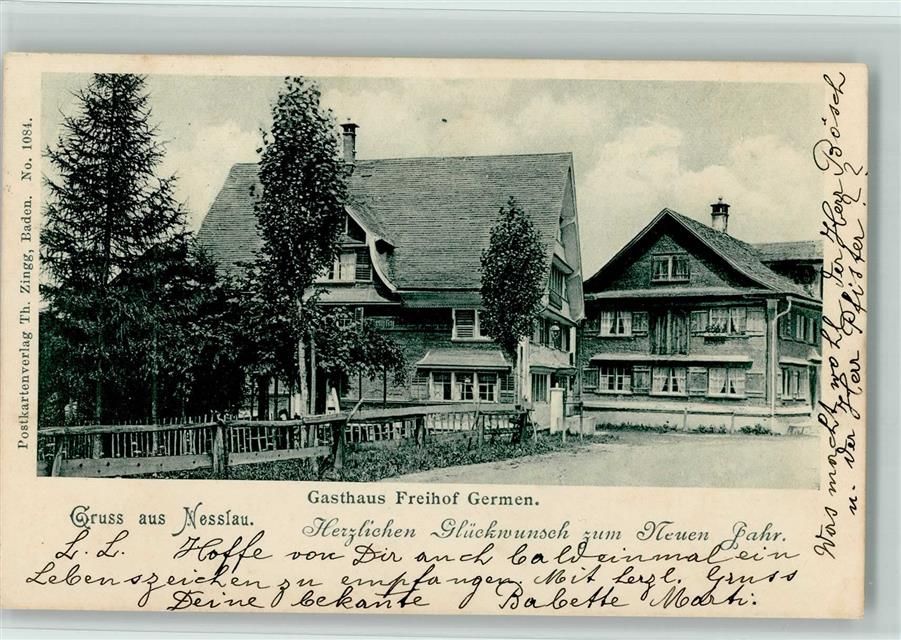 Postkartenverlag Th. Zingg, Baden. No. 1084.
Gasthaus Freihof Germen.
Gruss aus Nesslau.
Herzlichen Glückwunsch zum Neuen Jahr.
L. L. Hoffe von Dir auch bald einmal ein
Lebenszeichen zu empfangen. Mit herzl. Gruss
Deine bekante Babette Marti.
Was macht wohl der Herr Bösch
u. der Herr Pfister?